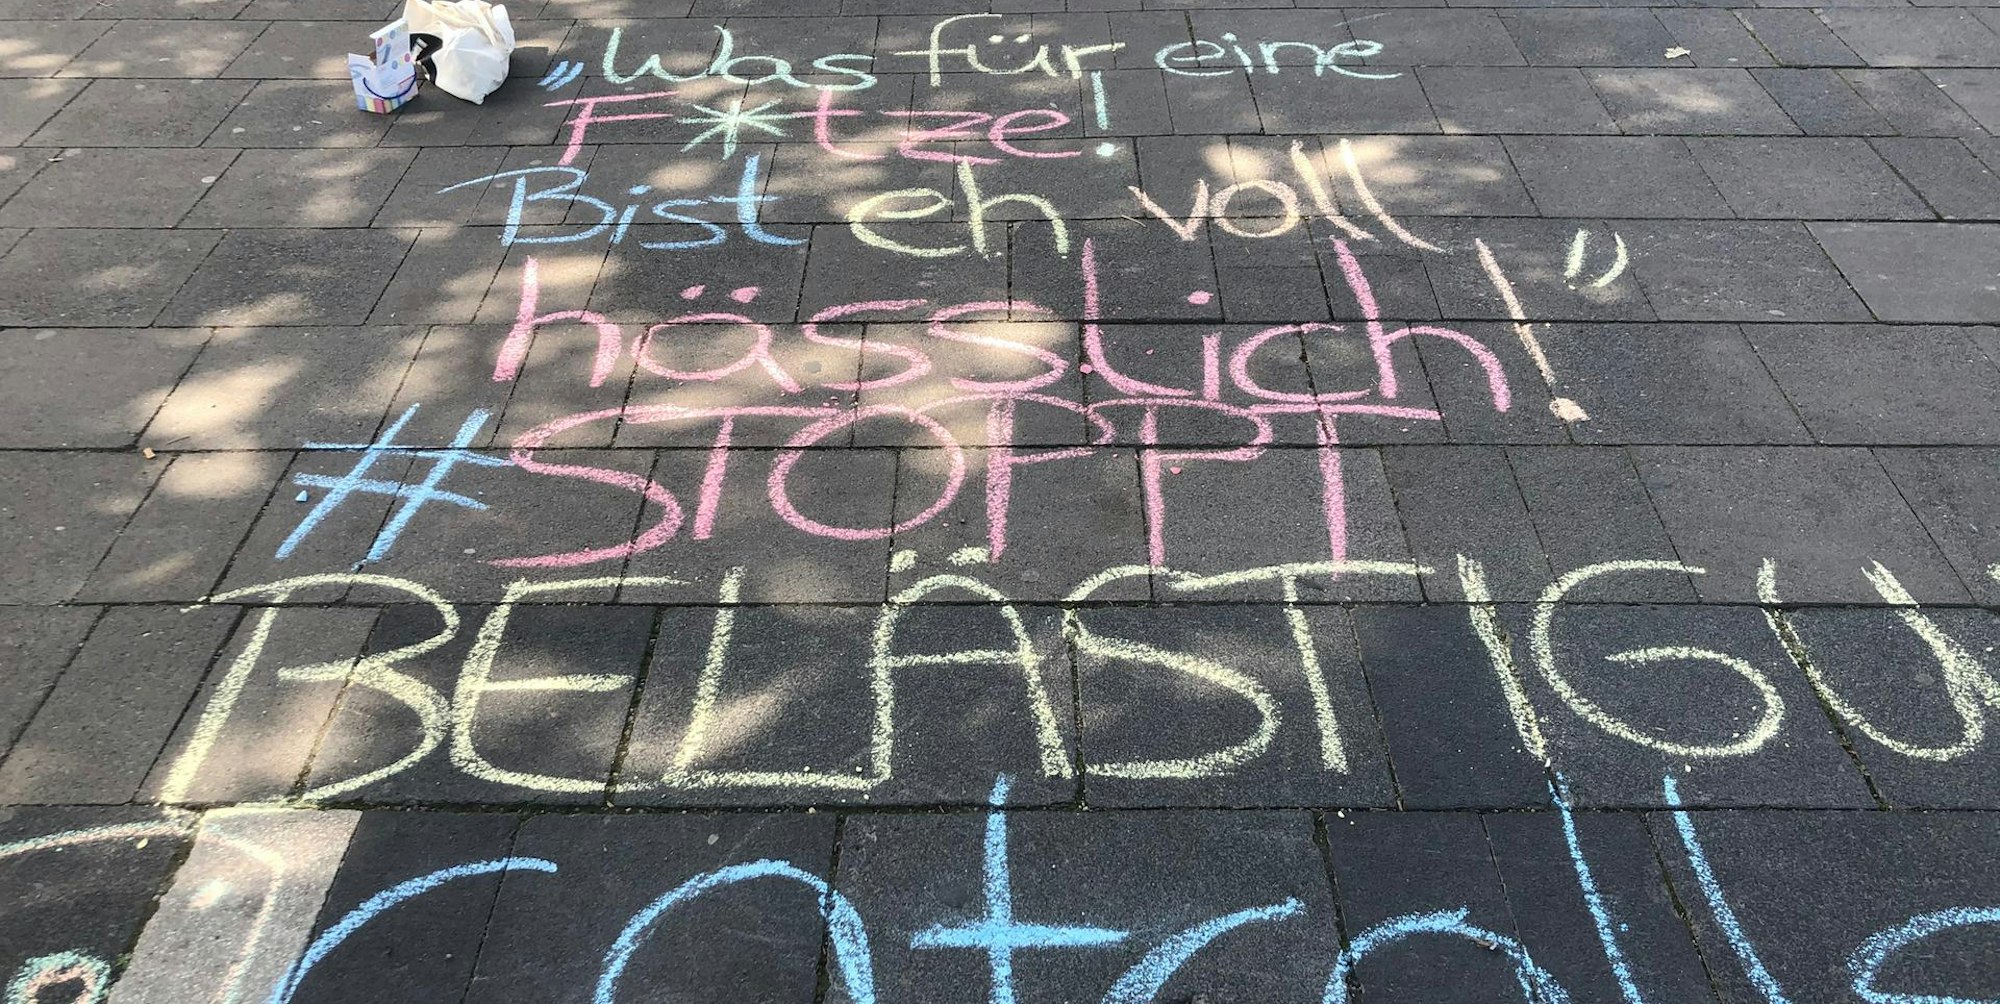 „Was für eine
F*tze!
Bist eh voll
hässlich!"
#STOPPT
BELÄSTIGU
catcalls